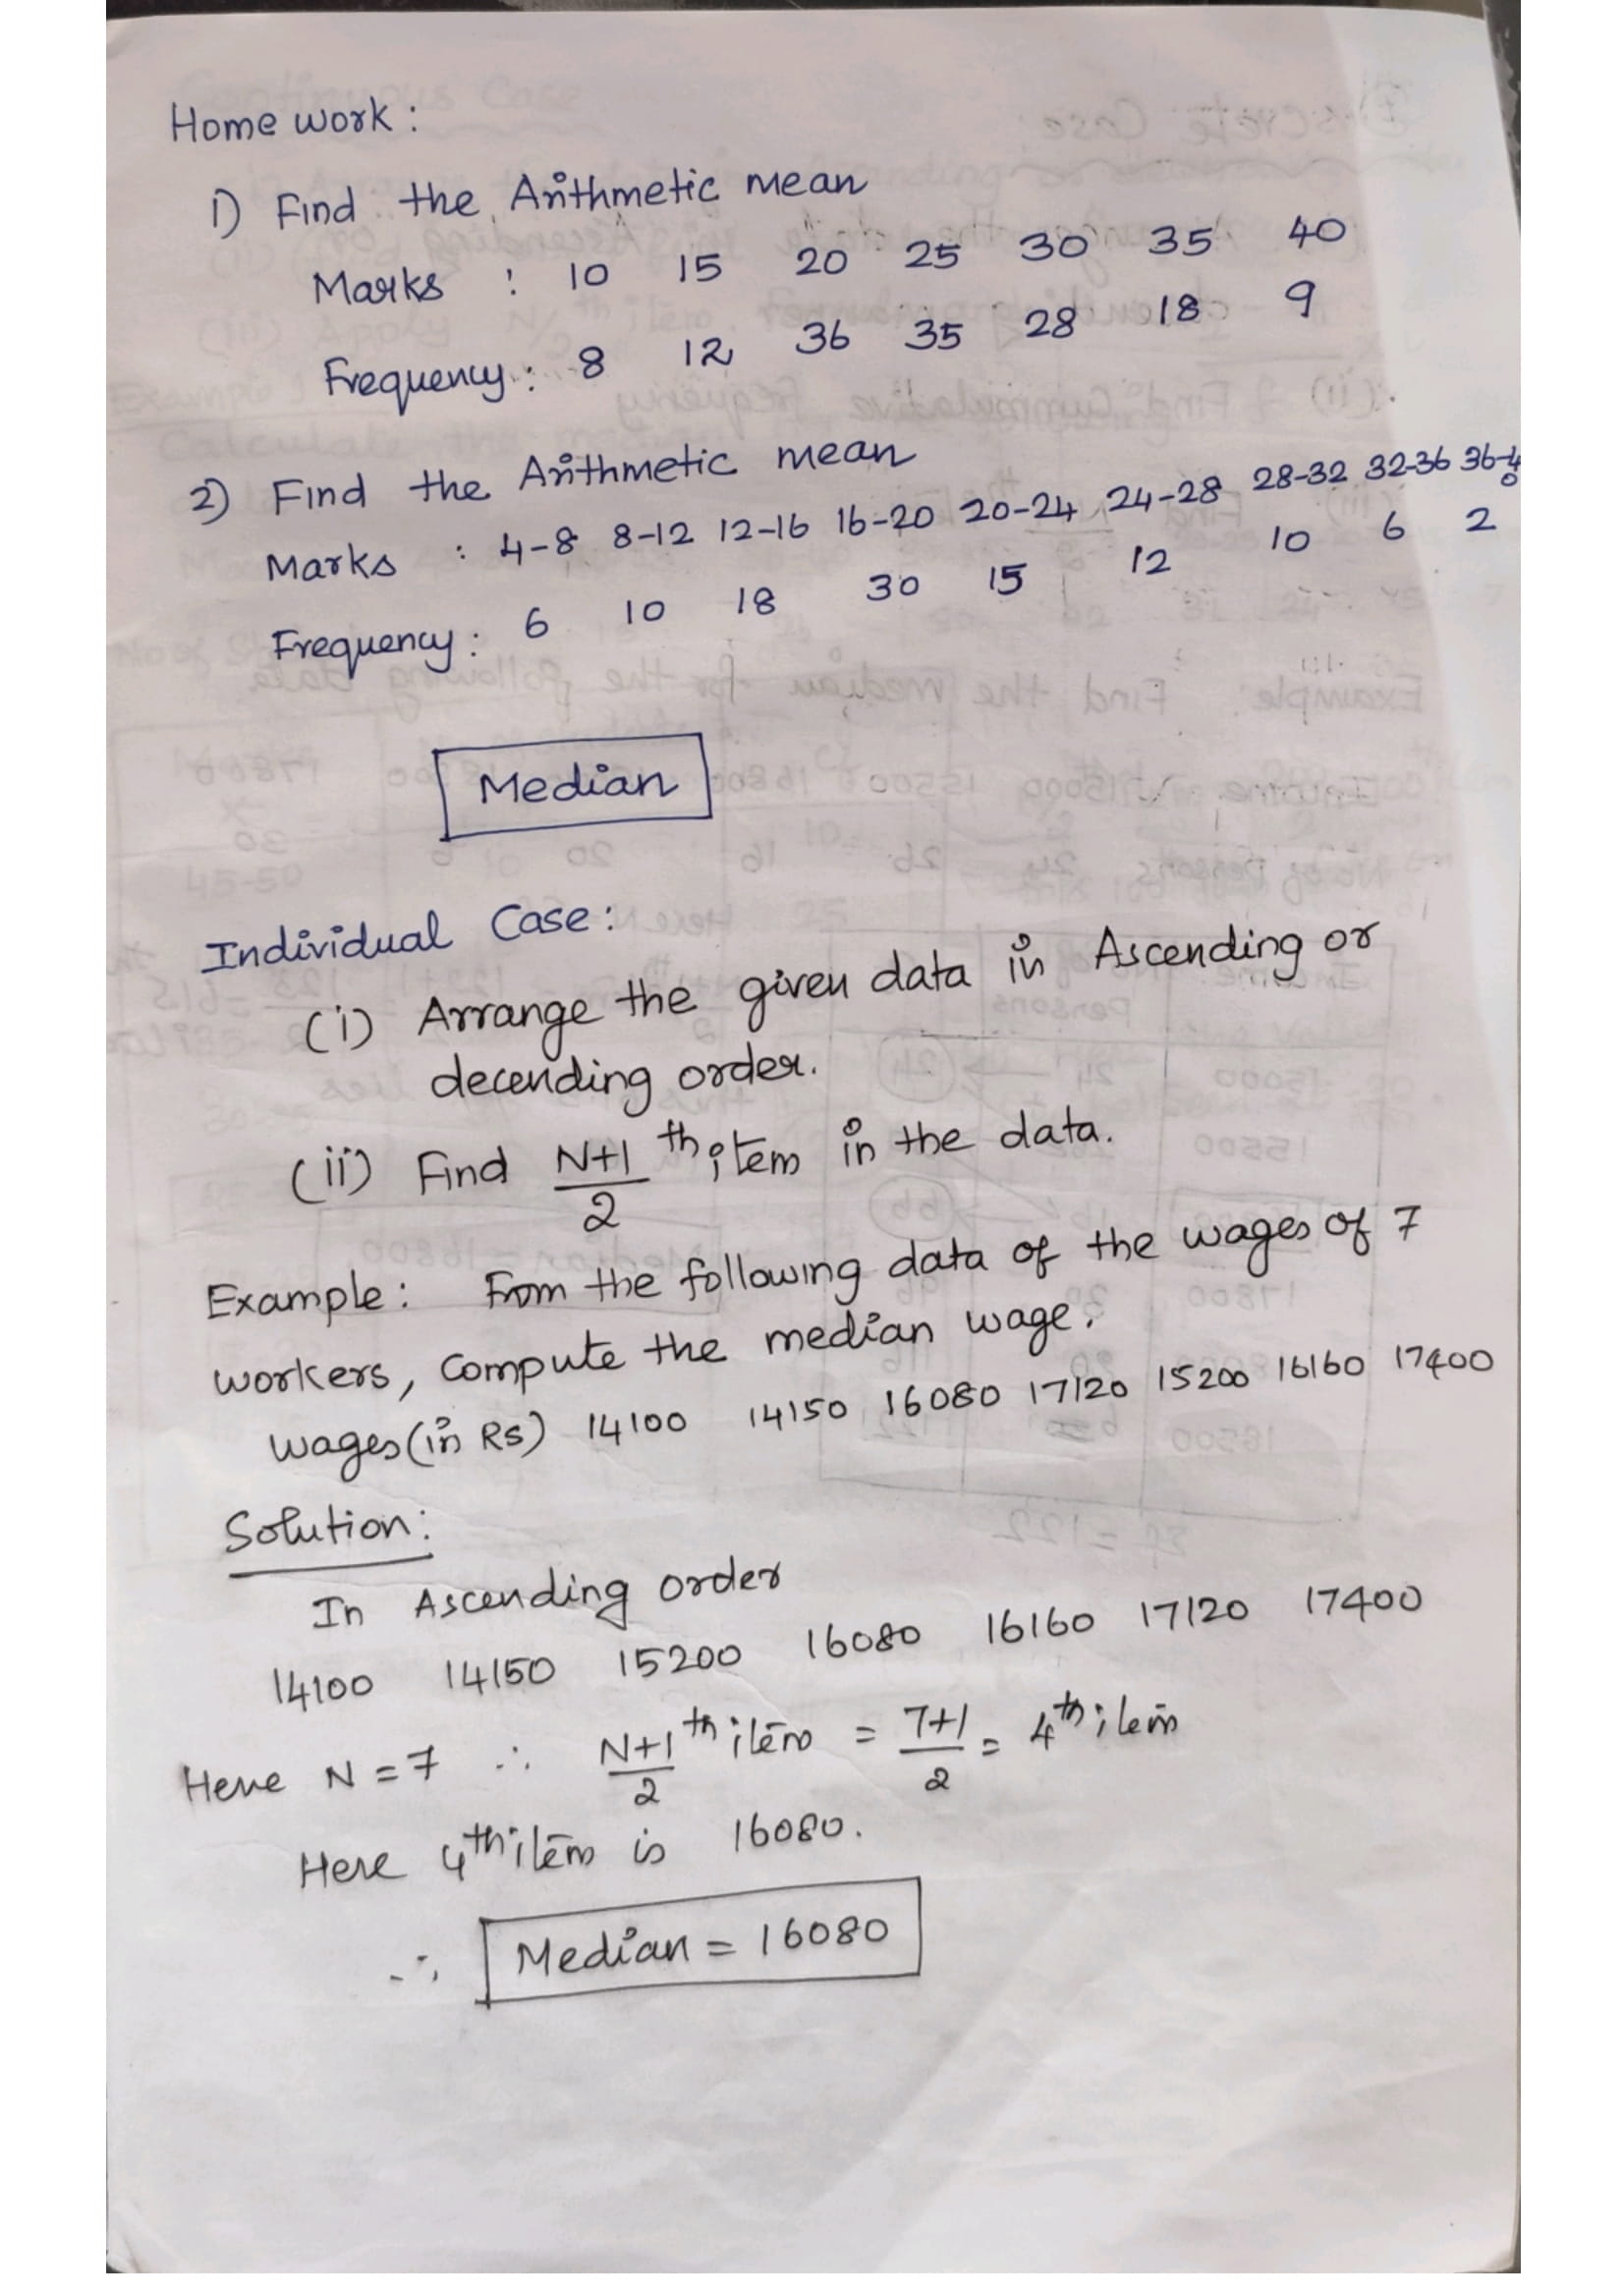 Home work :
1) Find the Arithmetic mean
Marks : 10 15 20 25 30 35 40
Frequency : 8 12 36 35 28 18 9
2) Find the Arithmetic mean
Marks : 4-8 8-12 12-16 16-20 20-24 24-28 28-32 32-36 36-40
Frequency : 6 10 18 30 15 12 10 6 2
Median
Individual Case :
(i) Arrange the given data in Ascending or
decending order.
(ii) Find N+1/2 th item in the data.
Example : From the following data of the wages of 7
workers, compute the median wage.
wages (in Rs) 14100 14150 16080 17120 15200 16160 17400
Solution :
In Ascending order
14100 14150 15200 16080 16160 17120 17400
Here N = 7 ∴ N+1/2 th item = 7+1/2 = 4th item
Here 4th item is 16080.
∴ Median = 16080